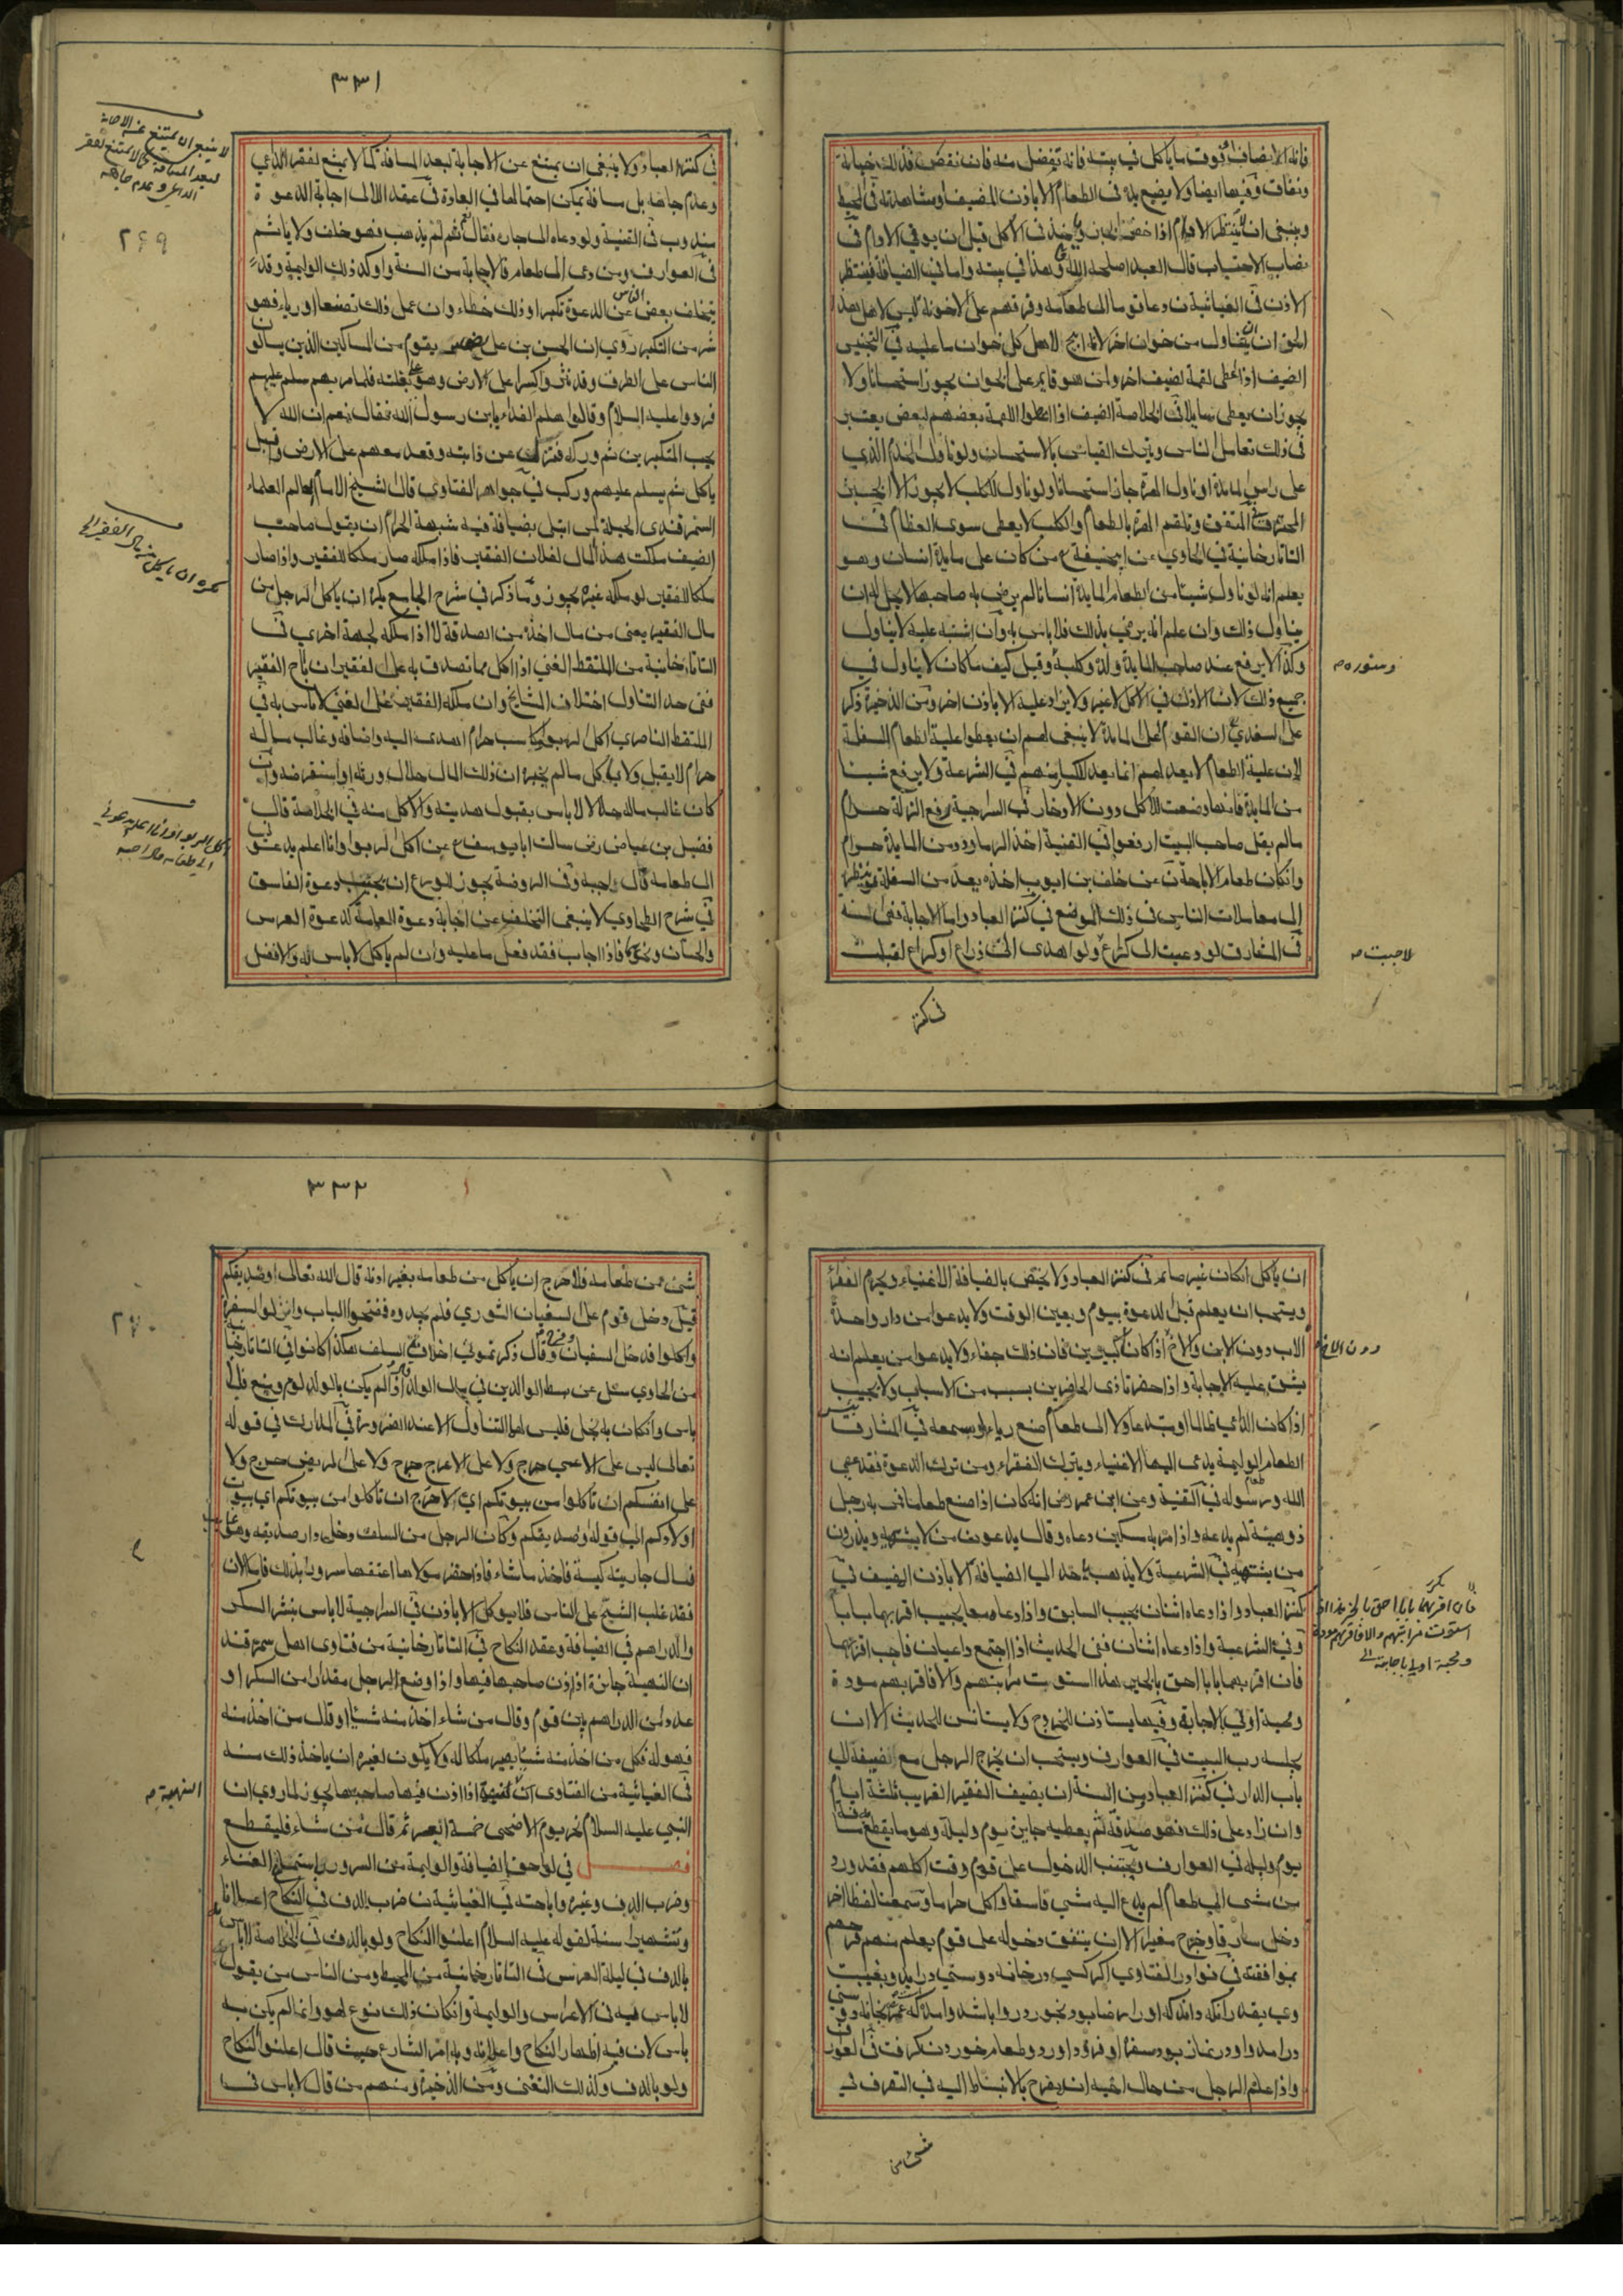 فانه لا يضاف فوق ما ياكل في بيته فانه تفضل منه فان نقص فذلك خيانة
ونفاق وفيها ايضا ولا يضيع يده في الطعام الا باذن المضيف او مشاهدته في المحيط
وينبغي ان لا ينتظر الادام اذا حضر الخبز وياخذ في الاكل قبل ان يوتي الادام في
نصاب الاحتساب قال العبد اصلحه الله وهذا في بيته واما في الضيافة فينتظر
الاذن في الغياثية ن دعا قوما الى طعامه وفرقهم على اخونة ليس لاهل هذا
الخوان ان يتناول من خوان اخر لانه ابيح لاهل كل خوان ما عليه في التجنيس
الضيف اذا اعطى لقمة لضيف اخر ولمن هو قايم على الخوان يجوز استحسانا ولا
يجوز ان يعطى سايلا في الخلاصة الضيف اذا اعطوا اللقمة بعضهم لبعض يعتبر
في ذلك تعامل الناس ويترك القياس بالاستحسان ولو ناول الخادم الذي
على راس المايدة او ناول الهرة جاز استحسانا ولو ناول الكلب لا يجوز الا الخبز
المحترق في المتفق وتلقم الهرة بالطعام والكلب لا يعطى سوى العظام في
التاتارخانية في الحاوي عن ابي حنيفة ع من كان على مايدة انسان وهو
يعلم انه لو ناول شيئا من الطعام المايدة انسانا لم يرض به صاحبها لا يحل له ان
يناول ذلك وان علم انه يرضى بذلك فلا باس به وان اشتبه عليه لا يناول
وكذا لا يرفع عند صاحب المايدة ولده وكلبه وقيل كيف ما كان لا يناول في
وسنوره صح
جميع ذلك لان الاذن في الاكل لا غير ولا يزاد عليه الا باذن اخر ومن الذخيرة ذكر
على السغدي ع ان القوم على المايدة لا ينبغي لهم ان يعطوا علية الطعام للسفلة
لان علية الطعام لا يعد لهم انما يعد للكبار منهم في الشرعة ولا يرفع شيئا
من المايدة فانها وضعت للاكل دون الادخار في السراجية رفع الزلة حرام
ما لم يقل صاحب البيت ارفعوا في القنية اخذ الرماورد من المايدة حرام
وان كان طعام الاباحة ن عن خلف بن ايوب اخذه يعد من السفلة ثم ينظر
الى معاملات الناس في ذلك الموضع في كنز العباد واما الاجابة ففي السنة
في المشارق لو دعيت الى كراع ولو اهدى الى ذراع او كراع لقبلت
لاجبت صح
في كنز
٣٣١
في كنز العباد ولا ينبغي ان يمتنع عن الاجابة لبعد المسافة كما لا يمتنع لفقر الداعي
وعدم جاهه بل مسافة يمكن احتمالها في العادة في عقد اللآلى اجابة الدعوة
مندوب في القنية ولو دعاه الى جاره فقال نعم ثم لم يذهب فهو خلف ولا ياثم
في العوارف ومن دعى الى طعام فالاجابة من السنة واوكد ذلك الوليمة وقد
يتخلف بعض الناس عن الدعوة تكبرا وذلك خطاء وان عمل ذلك تصنعا او رياء فهو
شر من التكبر روي ان الحسن بن علي رضى مر بقوم من المساكين الذين يسالون
الناس على الطرق وقد نثروا كسرا على الارض وهو على بغلته فلما مر بهم سلم عليهم
فردوا عليه السلام وقالوا هلم الغداء يا بن رسول الله فقال نعم ان الله لا
يحب المتكبرين ثم وركه فنزل عن دابته وقعد معهم على الارض واقبل
ياكل ثم يسلم عليهم وركب في جواهر الفتاوي قال الشيخ الامام عالم العلماء
السمرقندي الحيلة لمن ابتلى بضيافة فيه شبهة الحرام ان يقول صاحب
الضيف ملكت هذا المال لفلان الفقير فاذا ملكه صار ملكا للفقير واذا صار
ملكا للفقير لو ملكه غيره يجوز وما ذكر في شرح الجامع يكره ان ياكل الرجل من
مال الفقير يعني من مال اخذه من الصدقة لا اذا ملكه لجهة اخرى في
التاتارخانية من الملتقط الغني اذا اكل مما تصدق به على الفقير ان اباح الفقير
ففي حد التناول اختلاف المشايخ وان ملكه الفقير من الغني لا باس به في
الملتقط الناصري اكل الربوا وكاسب حرام اهدى اليه واضافه وغالب ماله
حرام لا يقبل ولا ياكل ما لم يخبره ان ذلك المال حلال ورثه او استقرضه وان
كان غالب ماله حلالا لا باس بقبول هديته والاكل منه في الخلاصة قال
فضيل بن عياض رضى سالت ابا يوسف ع عن اكل الربوا وانا اعلم يدعوني
الى طعامه قال اجبه وفي الروضة يجوز للورع ان يجتنب دعوة الفاسق
في شرح الطحاوي لا ينبغي التخلف عن اجابة دعوة العامة كدعوة العرس
والختان ونحوها فاذا اجاب فقد فعل ما عليه وان لم ياكل لا باس به والافضل
لا ينبغي ان يمتنع عن الاجابة
لبعد المسافة كما لا يمتنع لفقر
الداعي وعدم جاهه
٢٦٩
يكره ان ياكل من مال الفقير الخ
اكل الربوا اذا علم يدعوني
الى طعامه قال اجبه
ان ياكل ان كان غير صايم في كنز العباد ولا يختص بالضيافة الاغنياء ويحرم الفقراء
ويستحب ان يعلم قبل الدعوة بيوم ويعين الوقت ولا يدعو من دار واحدة
الاب دون الابن والاخ اذا كانا كبيرين فان ذلك جفاء ولا يدعو من يعلم انه
دون الاخ صح
يشق عليه الاجابة واذا حضر تاذى الحاضرين بسبب من الاسباب ولا يجيب
اذا كان الداعي ظالما او مبتدعا ولا الى طعام صنع رياء او سمعة في المشارق بئس
الطعام طعام الوليمة يدعى اليها الاغنياء ويترك الفقراء ومن ترك الدعوة فقد عصى
الله ورسوله في القنية وعن ابن عمر رضى انه كان اذا صنع طعاما فمر به رجل
ذو هيئة لم يدعه واذا مر به مسكين دعاه وقال يدعون من لا يشتهيه ويذرون
من يشتهيه في الشرعة ولا يذهب باحد الى الضيافة الا باذن المضيف في
كنز العباد واذا دعاه اثنان يجيب السابق واذا دعاه معا يجيب اقربهما بابا
وفي الشرعة واذا دعاه اثنان ففي الحديث اذا اجتمع داعيان فاجب اقربهما
فان اقربهما بابا احق بالخير هذا اذا استوت مراتبهم والا فاقربهم مودة
ومحبة اولى بالاجابة وفيها يستاذن للخروج ولا يستانس للحديث الا ان
يجلسه رب البيت في العوارف ويستحب ان يخرج الرجل مع ضيفه الى
باب الدار في كنز العباد من السنة ان يضيف الفقير الغريب ثلثة ايام
وان زاد على ذلك فهو صدقة ثم يعطيه جايزة يوم وليلة وهو ما يقطع به مسافة
يوم وليلة في العوارف ويجتنب الدخول على قوم وقت اكلهم فقد ورد
من مشى الى طعام لم يدع اليه مشى فاسقا واكل حراما وسمعنا لفظا اخر
دخل سارقا وخرج مغيرا الا ان يتفق دخوله على قوم يعلم منهم فرحهم
بموافقته في نوادر الفتاوي اكر كسي در خانه دوستي درايد وبغيبت
وي بقدر انكه داند كه او را رضا بود بخورد روا باشد وامده كه عمر بخانه دوستي
درامد واو در نماز بود سفره او فرود اورد وطعام خوردن كرفت في العوارف
واذا علم الرجل من حال اخيه انه يفرح بالانبساط اليه في التصرف في
فان اقربهما بابا احق بالخير هذا اذا
استوت مراتبهم والا فاقربهم مودة
ومحبة اولى باجابة الخ
شئ من
٣٣٢
شئ من طعامه فلا حرج ان ياكل من طعامه بغير اذنه قال الله تعالى او صديقكم
قيل دخل قوم على سفيان الثوري فلم يجدوه ففتحوا الباب وانزلوا السفرة
واكلوا فدخل سفيان وفرح وقال ذكرتموني اخلاق السلف هكذا كانوا في التاتارخانية
من الحاوي سئل عن بسط الوالدين في مال الولد اذا لم يكن بالوالد لوم ومنع فلا
باس وان كان به بخل فليس لهما التناول الا عند الضرورة في المدارك في قوله
تعالى ليس على الاعمى حرج ولا على الاعرج حرج ولا على المريض حرج ولا
على انفسكم ان تاكلوا من بيوتكم اي لا حرج ان تاكلوا من بيوتكم اي بيوت
اولادكم الى قوله او صديقكم وكان الرجل من السلف دخل دار صديقه وهو غايب
فسال جاريته كيسه فاخذ ما شاء فاذا حضر مولاها اعتقها سرورا بذلك فاما الان
فقد غلب الشح على الناس فلا يوكل الا باذن في السراجية لا باس بنثر السكر
والدراهم في الضيافة وعقد النكاح في التاتارخانية من فتاوى اهل سمرقند
ان النهبة جايزة اذا اذن صاحبها فيها واذا وضع الرجل مقدارا من السكر او
عددا من الدراهم بين قوم وقال من شاء اخذ منه شيئا او قال من اخذ منه
فهو له فكل من اخذ منه شيئا يصير ملكا له ولا يكون لغيره ان ياخذ ذلك منه
في الغياثية من الفتاوى ان النهبة اذا اذن فيها صاحبها يجوز لما روي ان
النهبة صح
النبي عليه السلام نحر يوم الاضحى خمسة ابعر ثم قال من شاء فليقطع
فصل في لواحق الضيافة والوليمة من السرور واستماع الغناء
وضرب الدف وغيره واباحته في الغياثية ن ضرب الدف في النكاح اعلانا
وتشهيرا سنة لقوله عليه السلام اعلنوا النكاح ولو بالدف في الخلاصة لا باس
بالدف في ليلة العرس في التاتارخانية من المحيط ومن الناس من يقول
لا باس فيه في الاعراس والوليمة وان كان ذلك نوع لهو وانما لم يكن به
باس لان فيه اظهار النكاح واعلانه وبه امر الشارع حيث قال اعلنوا النكاح
ولو بالدف وكذلك التغني ومن الذخيرة ومنهم من قال لا باس في
٢٧٠